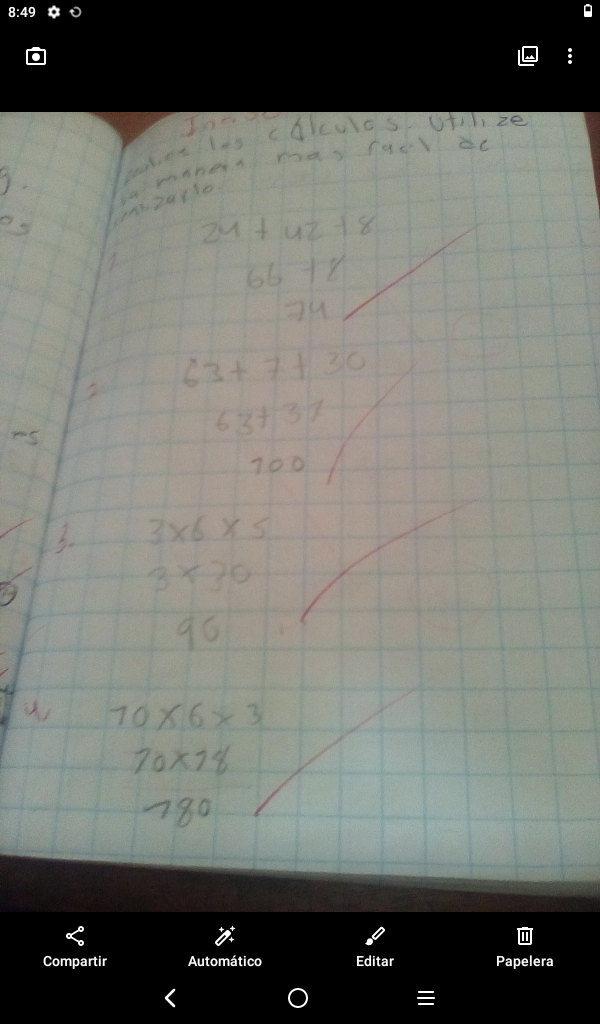 8:49
los cálculos. Utilize
manera mas facil de
1. 24 + 42 + 8
66 + 8
74
2. 63 + 7 + 30
63 + 37
100
3. 3 x 6 x 5
3 x 30
90
4. 10 x 6 x 3
10 x 18
180
Compartir
Automático
Editar
Papelera